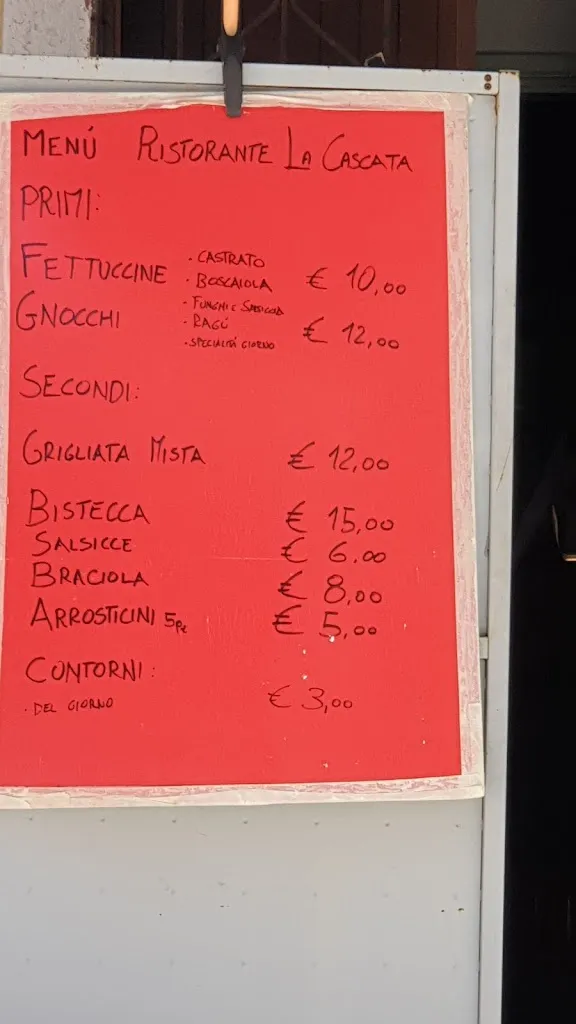 MENÚ RISTORANTE LA CASCATA
PRIMI:
FETTUCCINE € 10,00
GNOCCHI € 12,00
· CASTRATO
· BOSCAIOLA
· FUNGHI E SALSICCIA
· RAGÚ
· SPECIALITÀ GIORNO
SECONDI:
GRIGLIATA MISTA € 12,00
BISTECCA € 15,00
SALSICCE € 6.00
BRACIOLA € 8,00
ARROSTICINI 5pz € 5,00
CONTORNI:
· DEL GIORNO € 3,00